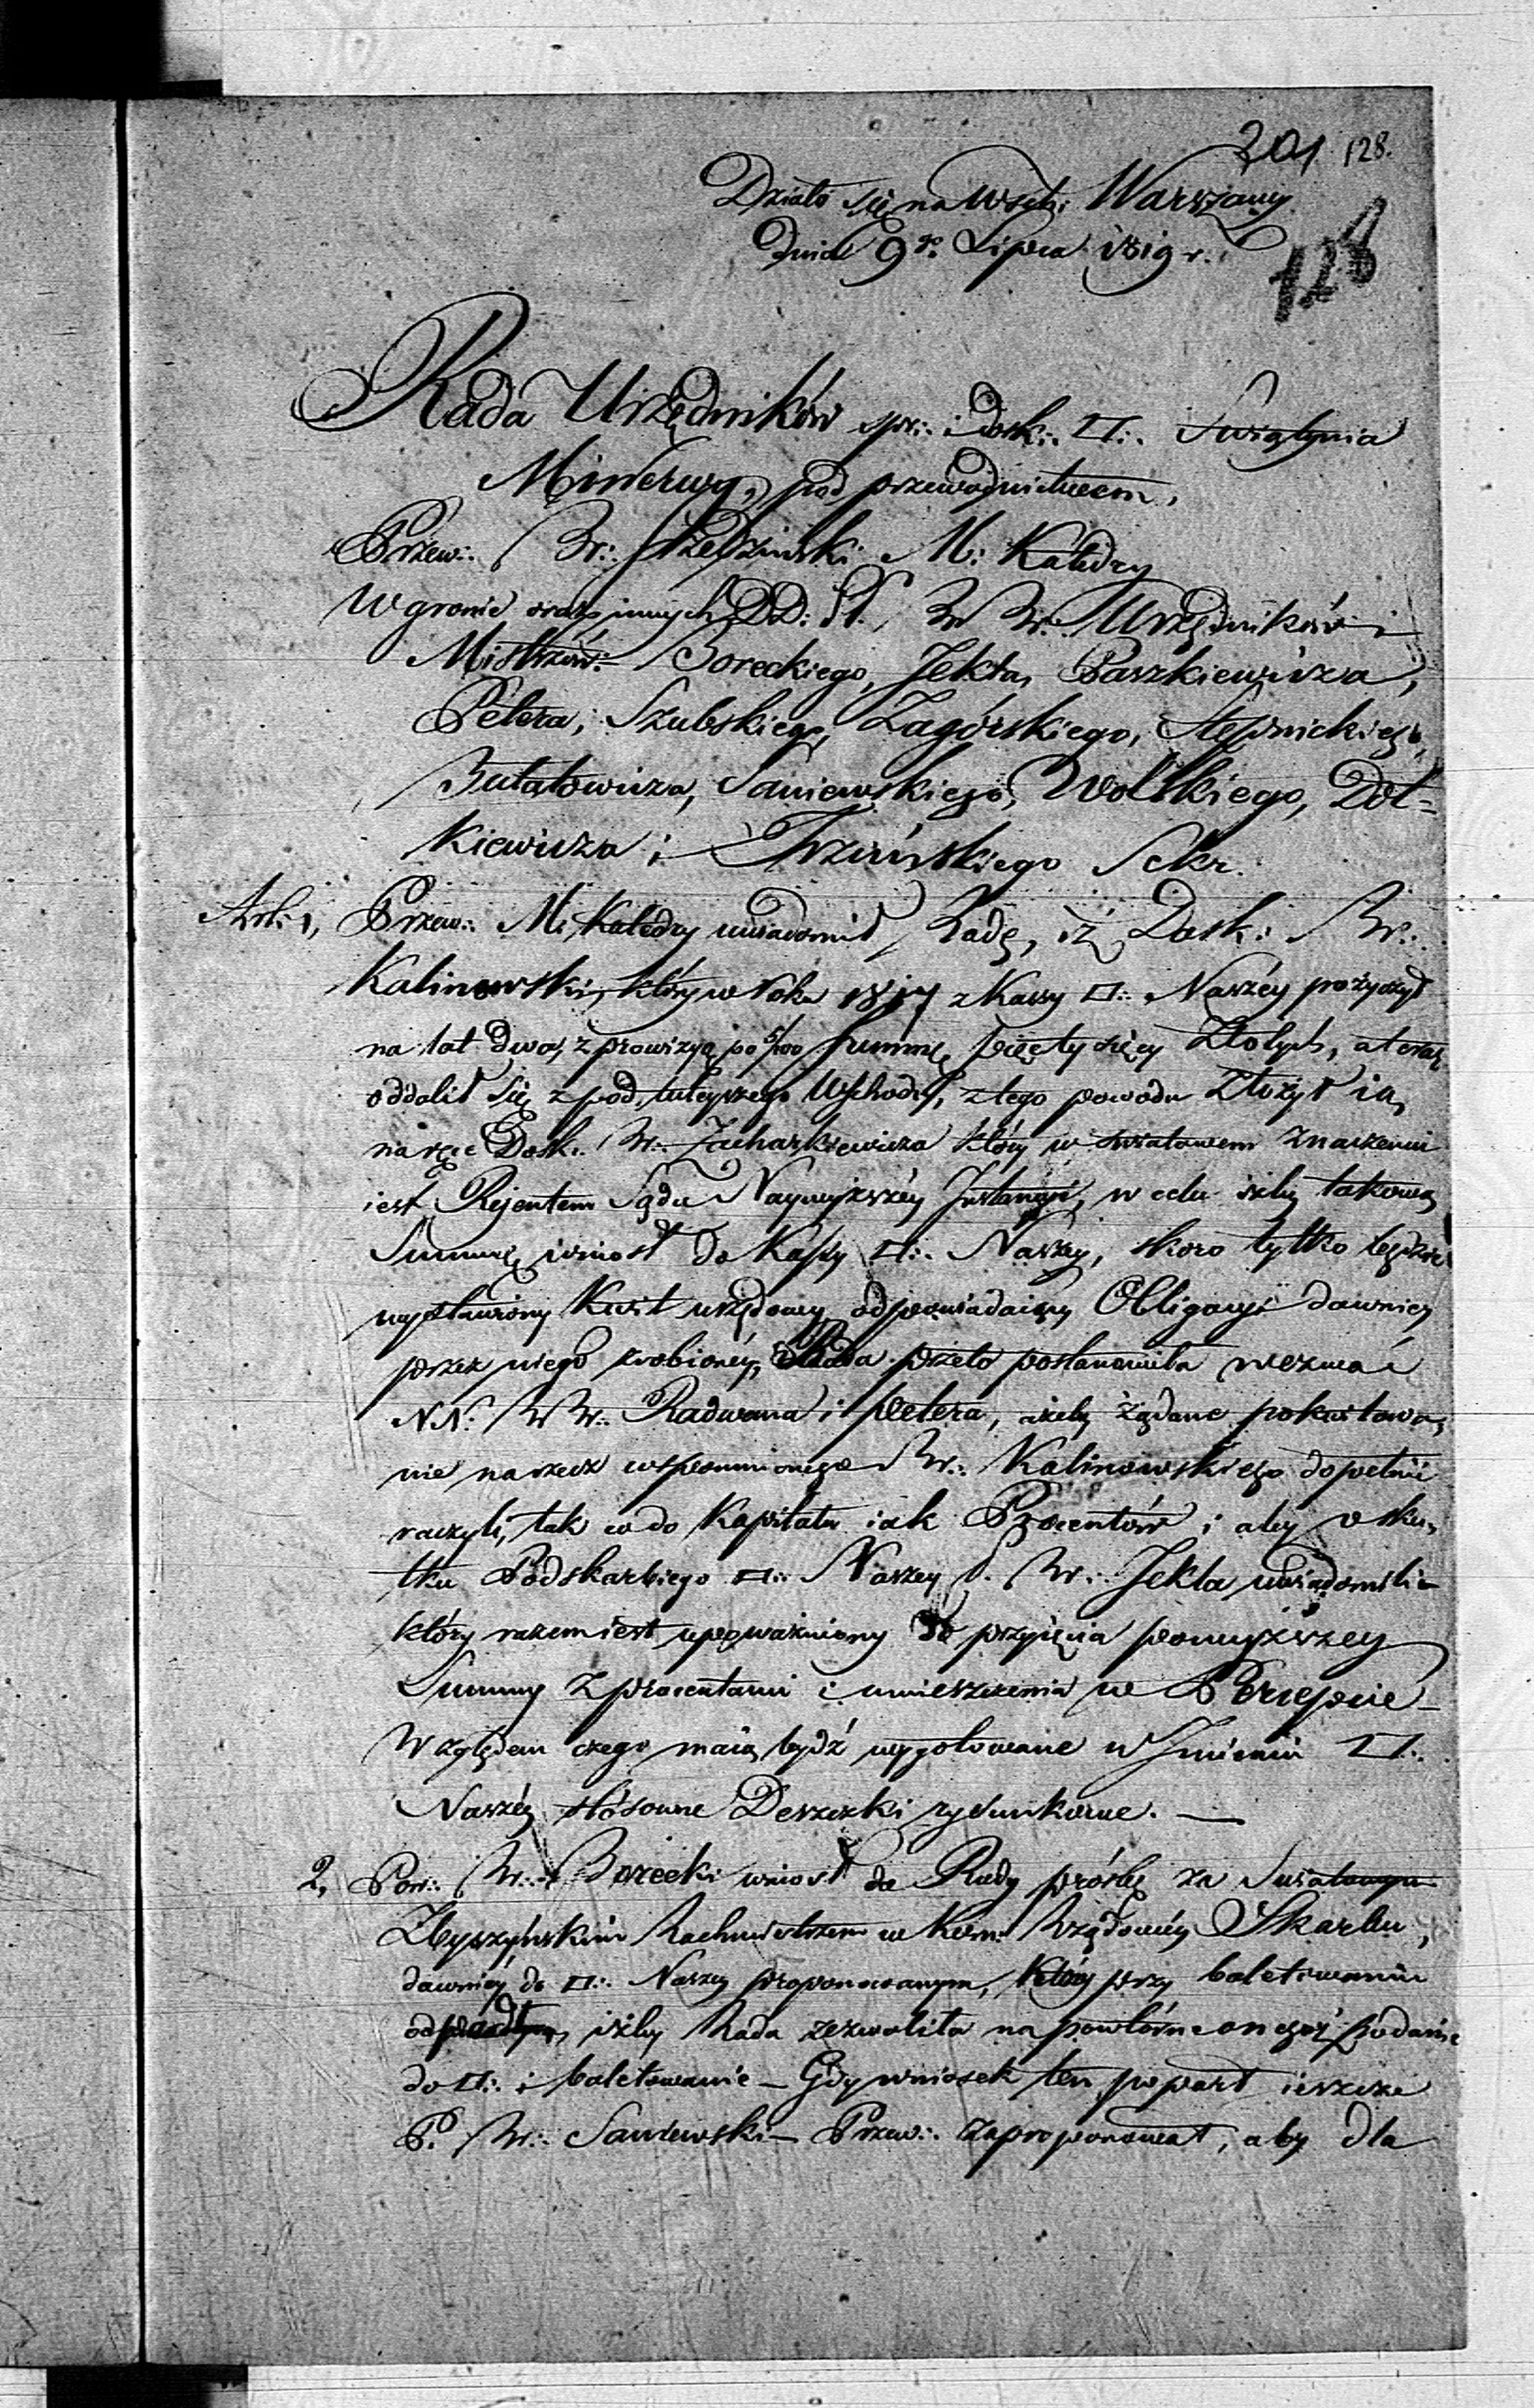 201 128.
Działo się na Wsch: Warszawy
Dnia 9go Lipca 1819 r.
128
Rada Urzędników spr:. i dosk:. □:. Swiątynia
Minerwy, pod przewodnictwem,
Przew:. Br:. M: Katedry
W gronie oraz innych DD: St. BrBr:. Urzędników i
Mistrzów:- Boreckiego, Jekta, Paszkiewicza,
Petera, Szubskiego, Zagórskiego, Stępnickiego,
Bułatowicza, Saniewskiego, Wolskiego, Dot=
kiewicza i Sekr.
Art: 1, Przew:. M: Katedry uwiadomił Radę, iż Dosk: Br:.
Kalinowski, który w Roku 1817 z Kassy □:. Naszéy pożyczył
na lat dwa, z prowizyą po 5/100 Summę pięć tysięcy Złotych, a teraz
oddalił się z pod tuteyszego Wschodu, z tego powodu złożył ią,
na ręce Dosk:. Br:. Zacharkiewicza który w światowem znaczeniu
iest Rejentem Sądu Naywyższéy Instancyi, w celu iżby takową
Summę wniosł do Kassy □:. Naszey, skoro tylko będzie
wystawiony Kwit urzędowy odpowiadaiący Obligacyi dawniey
przez niego zrobionéy, Rada przeto postanowiła wezwać
NN: BrBr:. Radwana i Petera, ażeby żądane pokwitowa,
nie na rzecz wspomnionego Br:. Kalinowskiego dopełnić
raczyli, tak co do Kapitału iak Procentów i aby o sku,
tku Podskarbiego □:. Naszey P. Br:. Jekta uwiadomili -
który razem iest upoważniony do przyięcia powyższey
Summy z procentami i umieszczenia w Percepcie -
Względem czego maią bydź wygotowane w Imieniu □:.
Naszéy stósowne Deszczki rysunkowe. —
2, Pow:. Br:. Borecki wniosł do Rady prośbę za Swiatowym
Zbyszyńskim Rachmistrzem w Kom: Rządowéy Skarbu,
dawniéy do □:. Naszey proponowanym, który przy baletowaniu
iżby Rada zezwoliła na powtórne onegoż podanie
do □:. i baletowanie - Gdy wniosek ten poparł ieszcze
P. Br:. Saniewski - Przew:. zaproponował, aby dla